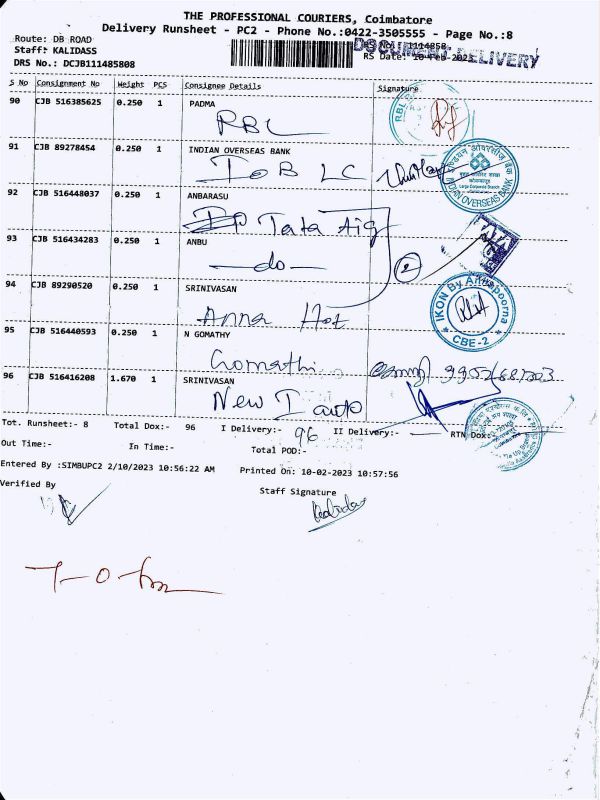 THE PROFESSIONAL COURIERS, Coimbatore
Delivery Runsheet - PC2 - Phone No.:0422-3505555 - Page No.:8
DOCUMENT DELIVERY
Route: DB ROAD
Staff: KALIDASS
RS Date: 10-Feb-2023
DRS No.: DCJB111485808
S No Consignment No Weight PCS Consignee Details Signature
90 CJB 516385625 0.250 1 PADMA
RBL
91 CJB 89278454 0.250 1 INDIAN OVERSEAS BANK
IOB LC
Large Corporate Branch
INDIAN OVERSEAS BANK
92 CJB 516448037 0.250 1 ANBARASU
Tata Aig
93 CJB 516434283 0.250 1 ANBU
do
2
94 CJB 89290520 0.250 1 SRINIVASAN
Anna Hot
IKON By Annapoorna
CBE-2
95 CJB 516440593 0.250 1 N GOMATHY
Gomathi
96 CJB 516416208 1.670 1 SRINIVASAN
New I
Tot. Runsheet:- 8 Total Dox:- 96 I Delivery:- 96 II Delivery:- RTN Dox:
Out Time:- In Time:- Total POD:-
Entered By :SIMBUPC2 2/10/2023 10:56:22 AM Printed On: 10-02-2023 10:57:56
Verified By Staff Signature